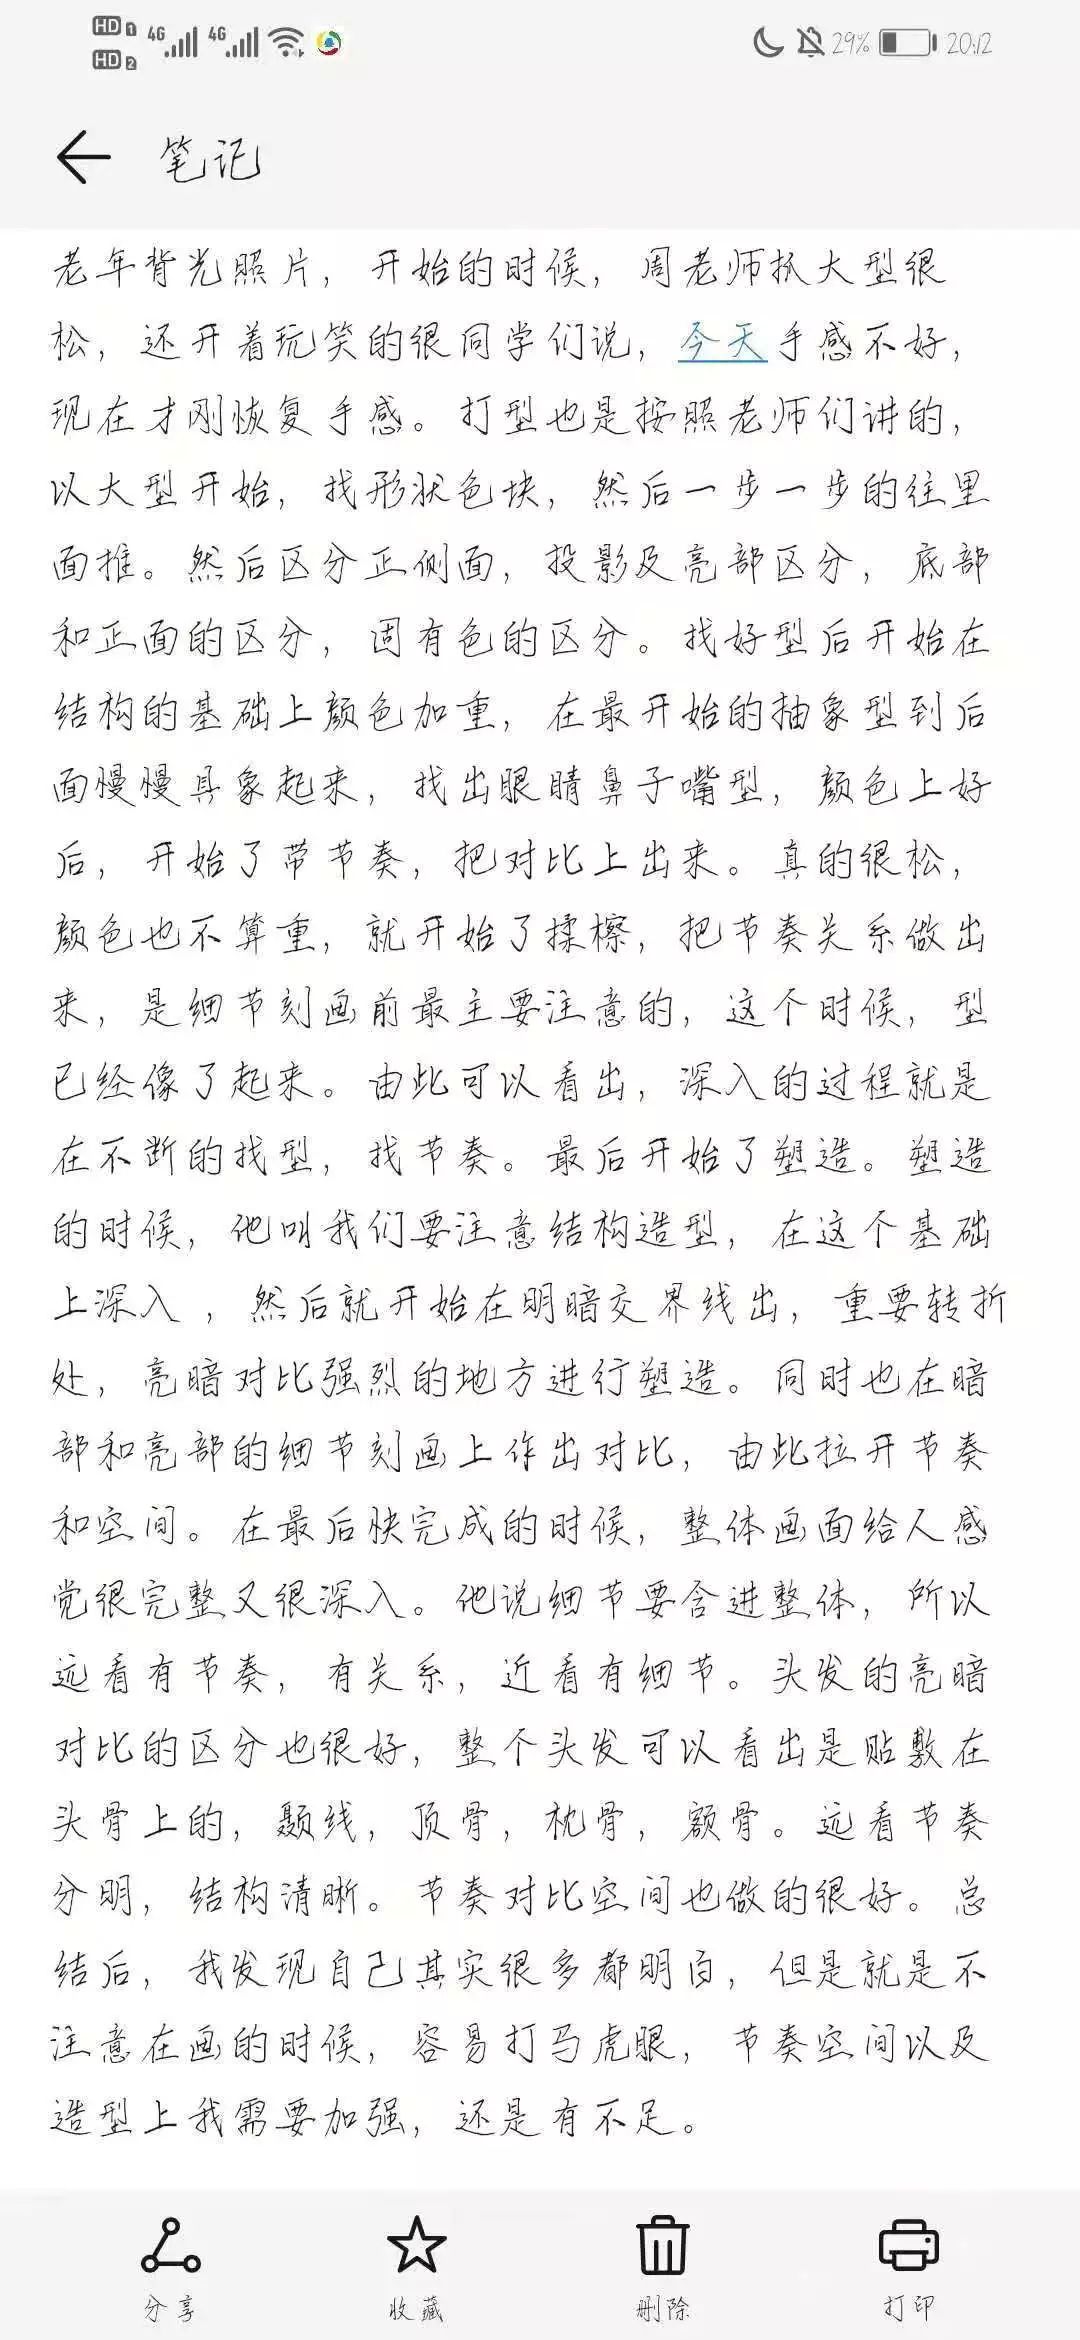 HD 1 4G 4G 29% 20:12
HD 2
笔记
老年背光照片，开始的时候，周老师抓大型很
松，还开着玩笑的很同学们说，今天手感不好，
现在才刚恢复手感。打型也是按照老师们讲的，
以大型开始，找形状色块，然后一步一步的往里
面推。然后区分正侧面，投影及亮部区分，底部
和正面的区分，固有色的区分。找好型后开始在
结构的基础上颜色加重，在最开始的抽象型到后
面慢慢具象起来，找出眼睛鼻子嘴型，颜色上好
后，开始了带节奏，把对比上出来。真的很松，
颜色也不算重，就开始了揉擦，把节奏关系做出
来，是细节刻画前最主要注意的，这个时候，型
已经像了起来。由此可以看出，深入的过程就是
在不断的找型，找节奏。最后开始了塑造。塑造
的时候，他叫我们要注意结构造型，在这个基础
上深入 ，然后就开始在明暗交界线出，重要转折
处，亮暗对比强烈的地方进行塑造。同时也在暗
部和亮部的细节刻画上作出对比，由此拉开节奏
和空间。在最后快完成的时候，整体画面给人感
觉很完整又很深入。他说细节要含进整体，所以
远看有节奏，有关系，近看有细节。头发的亮暗
对比的区分也很好，整个头发可以看出是贴敷在
头骨上的，颞线，顶骨，枕骨，额骨。远看节奏
分明，结构清晰。节奏对比空间也做的很好。总
结后，我发现自己其实很多都明白，但是就是不
注意在画的时候，容易打马虎眼，节奏空间以及
造型上我需要加强，还是有不足。
分享 收藏 删除 打印